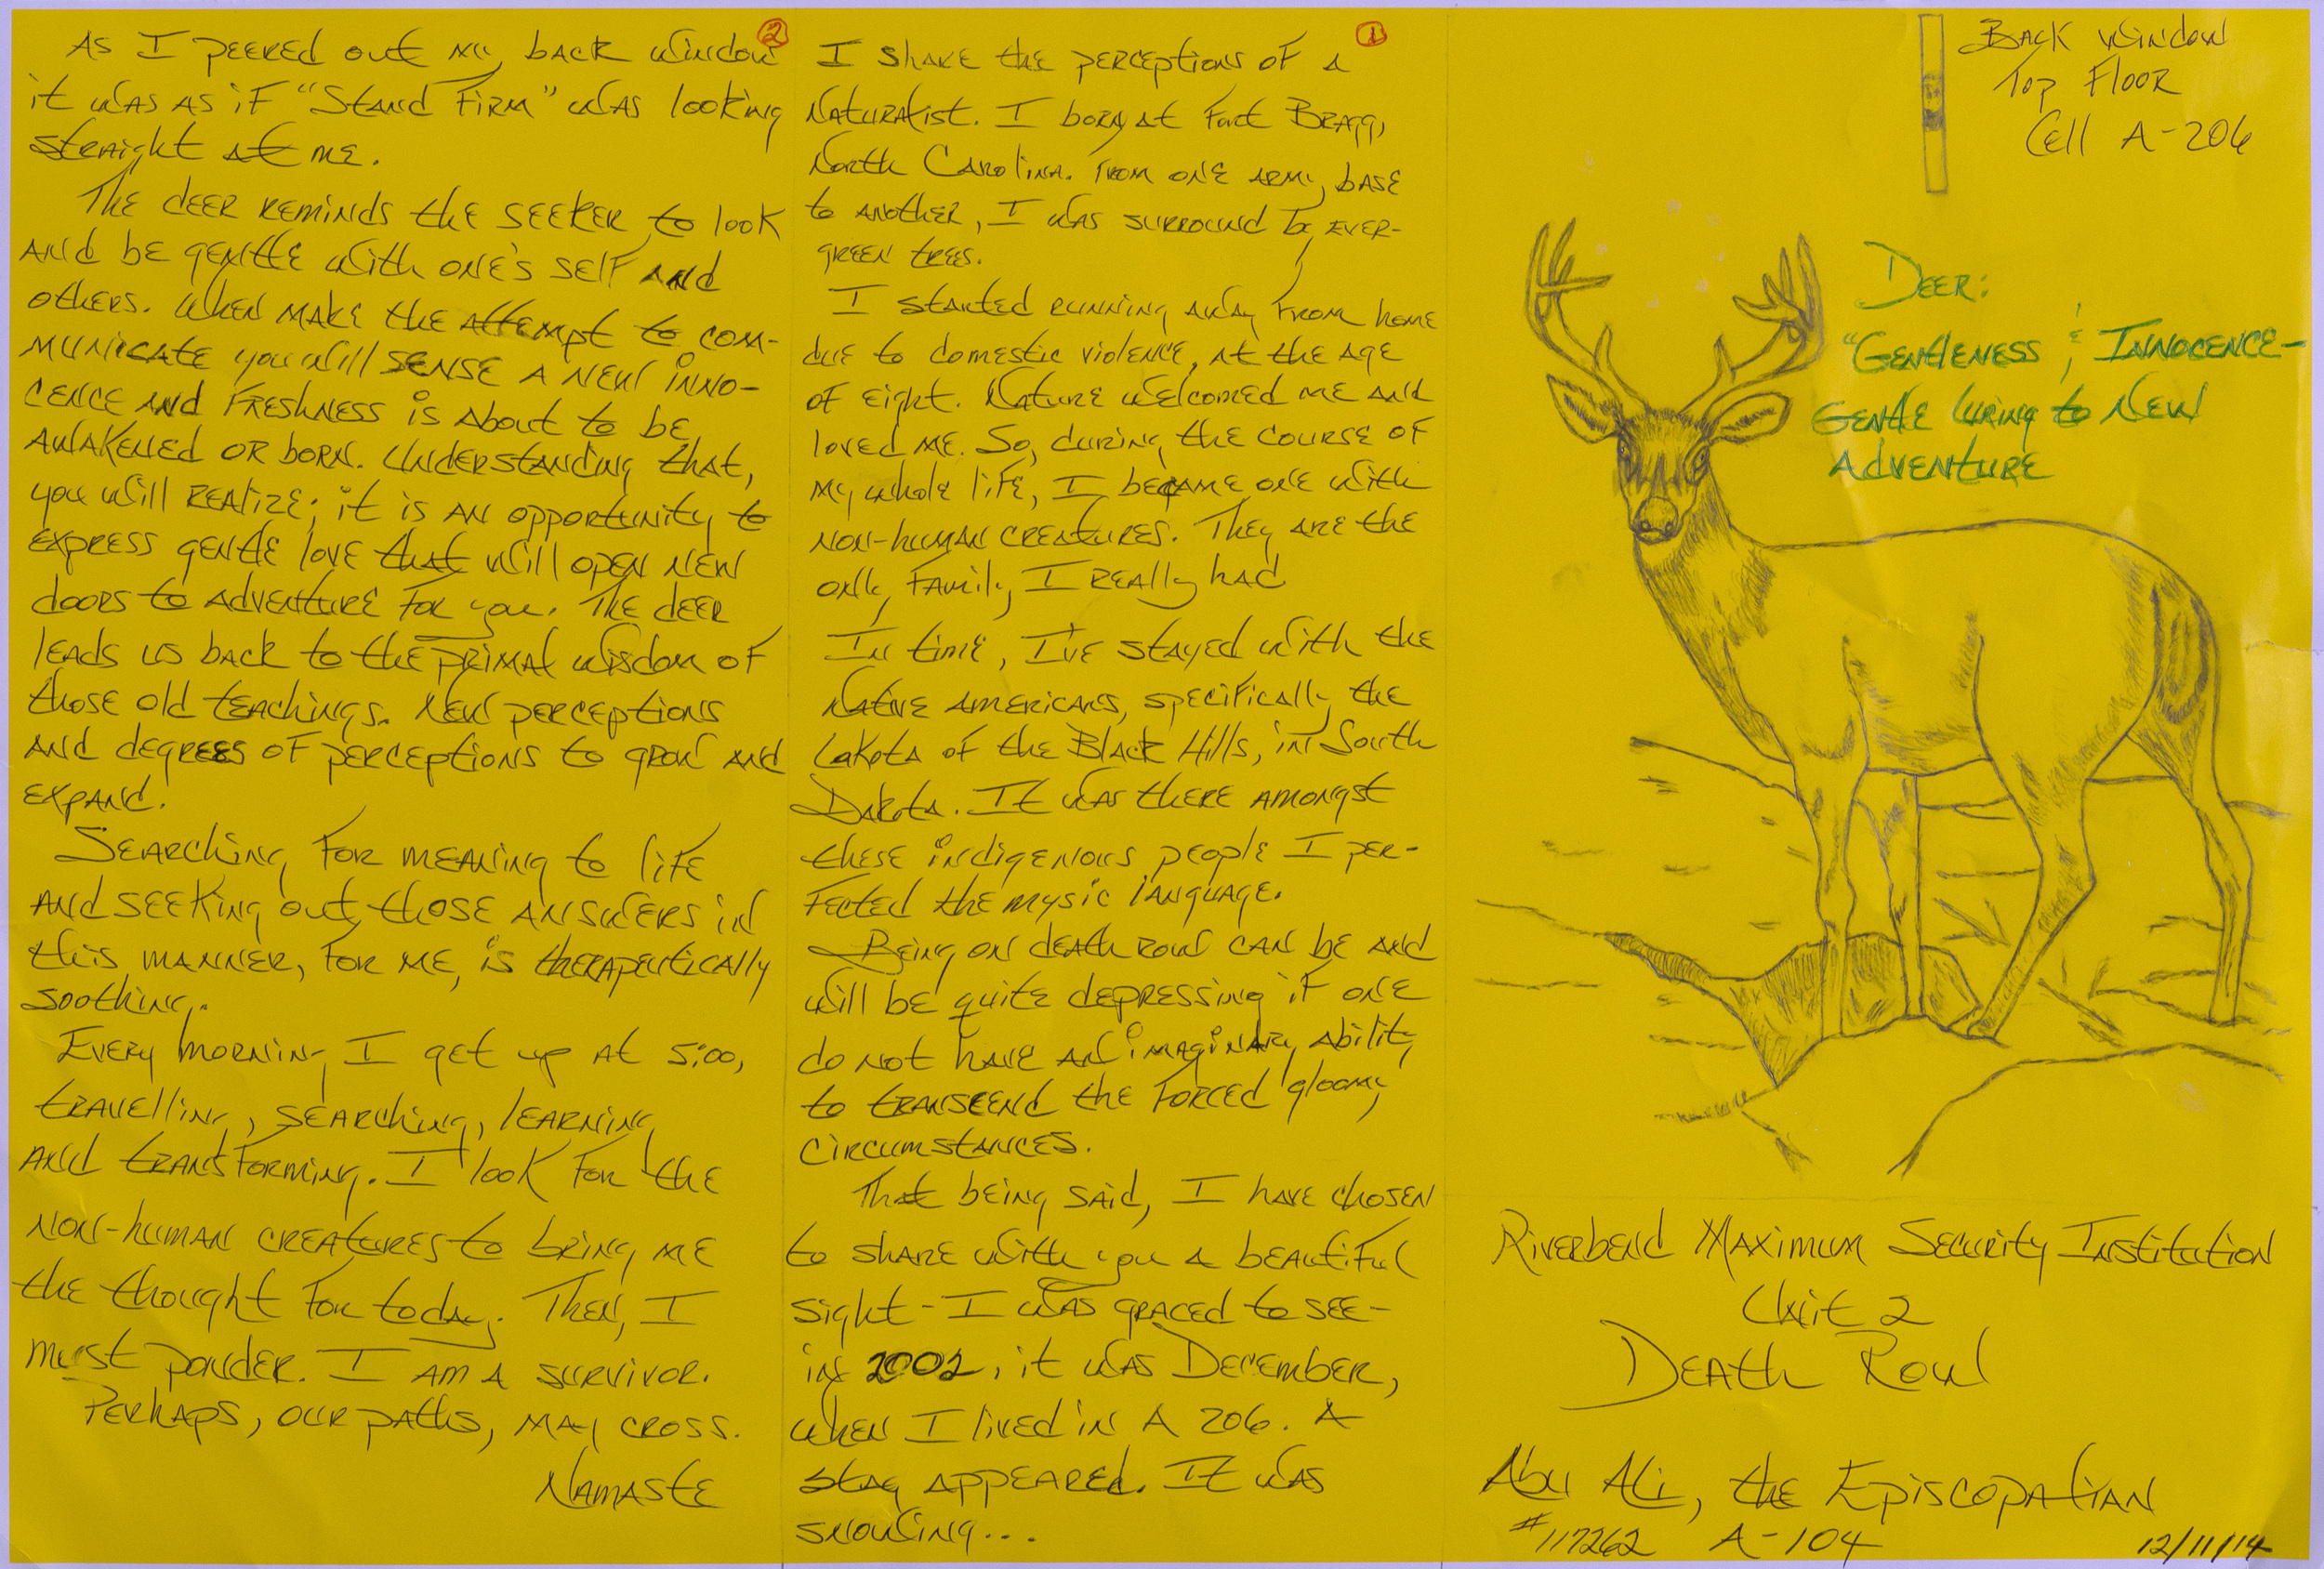 ①
I share the perceptions of a
Naturalist. I born at Fort Bragg,
North Carolina. From one army base
to another, I was surround by ever-
green trees.
I started running away from home
due to domestic violence, at the age
of eight. Nature welcomed me and
loved me. So, during the course of
my whole life, I became one with
non-human creatures. They are the
only family I really had
In time, I've stayed with the
Native Americans, specifically the
Lakota of the Black Hills, in South
Dakota. It was there amongst
these indigenous people I per-
fected the mysic language.
Being on death row can be and
will be quite depressing if one
do not have an imaginary ability
to transcend the forced gloomy
circumstances.
That being said, I have chosen
to share with you a beautiful
sight - I was graced to see -
in 2002, it was December,
when I lived in A 206. A
stag appeared. It was
snowing...
②
As I peered out my back window
it was as if "Stand Firm" was looking
straight at me.
The deer reminds the seeker to look
and be gentle with one's self and
others. When make the attempt to com-
municate you will sense a new inno-
cence and freshness is about to be
awakened or born. Understanding that,
you will realize; it is an opportunity to
express gentle love that will open new
doors to adventure for you. The deer
leads us back to the primal wisdom of
those old teachings. New perceptions
and degrees of perceptions to grow and
expand.
Searching for meaning to life
and seeking out those answers in
this manner, for me, is therapeutically
soothing.
Every morning I get up at 5:00,
travelling, searching, learning
and transforming. I look for the
non-human creatures to bring me
the thought for today. Then, I
must ponder. I am a survivor.
Perhaps, our paths, may cross.
Namaste
Back Window
Top Floor
Cell A-206
Deer:
"Gentleness & Innocence -
Gentle luring to New
Adventure
Riverbend Maximum Security Institution
Unit 2
Death Row
Abu Ali, the Episcopalian
#117262 A-104 12/11/14